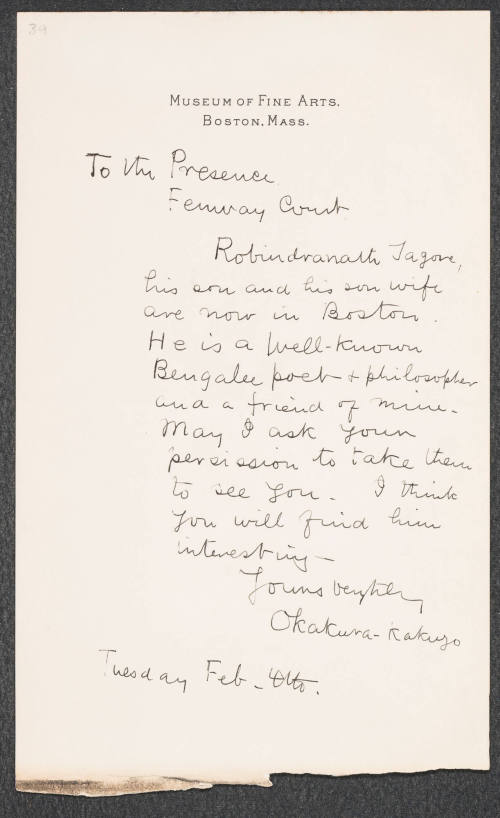 39
MUSEUM OF FINE ARTS.
BOSTON, MASS.
To the Presence
Fenway Court
Robindranath Tagore,
his son and his son wife
are now in Boston.
He is a well-known
Bengalee poet + philosopher
and a friend of mine.
May I ask your
persission to take them
to see you. I think
you will find him
interesting—
Yours
Okakura-Kakuzo
Tuesday Feb.